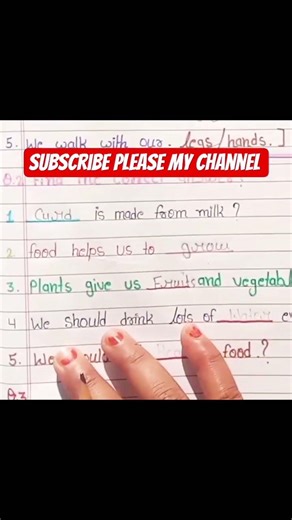 5. We walk with our legs/hands. ]
SUBSCRIBE PLEASE MY CHANNEL
1. Curd is made from milk ?
2 food helps us to grow
3. Plants give us Fruits and vegetabl
4 We should drink lots of Water e
5. We food.?
Q.3